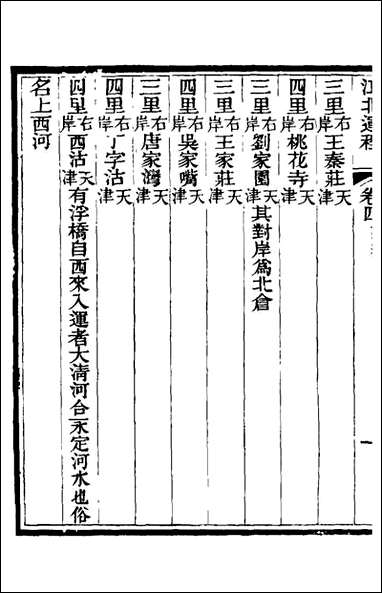 江北運程 卷四
三里右岸王秦莊天津
四里右岸桃花寺天津
三里右岸劉家園天津其對岸爲北倉
三里右岸王家莊天津
四里右岸吳家嘴天津
三里右岸唐家灣天津
四里右岸丁字沽天津
四里右岸西沽天津有浮橋自西來入運者大淸河合永定河水也俗
名上西河